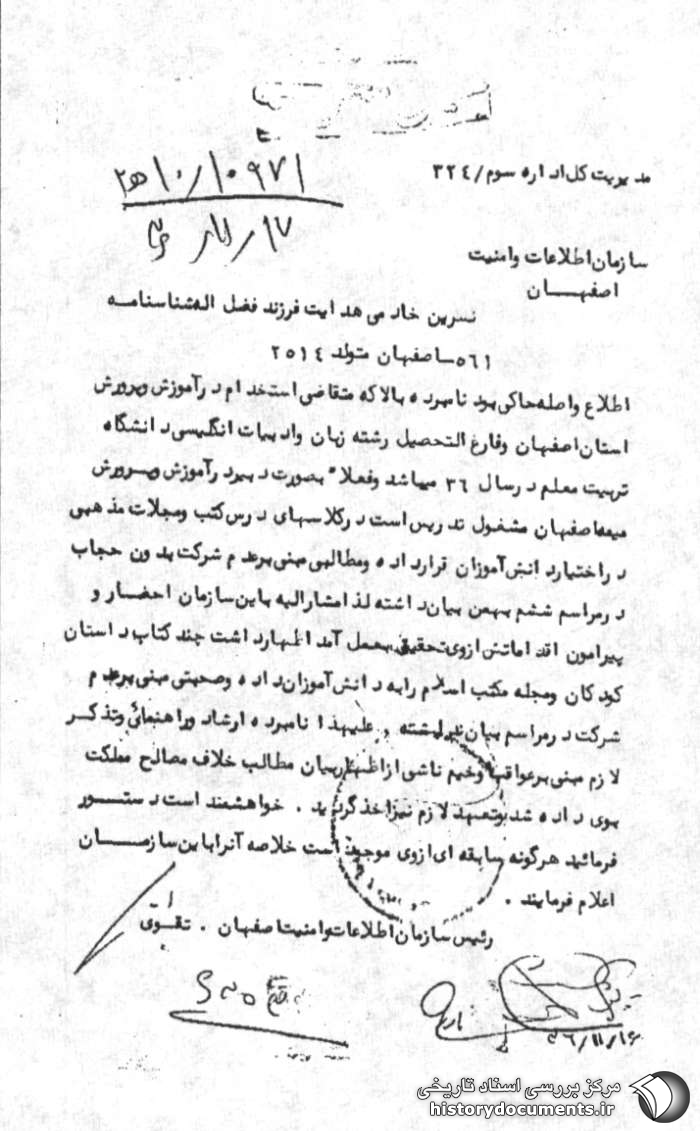 مدیریت کل اداره سوم/ ٣٢٤
١٠٩٧١/ ١٠/ ه‍ ٢
١٧/ ١١/ ٣٦
سازمان اطلاعات و امنیت
اصفهـــان
نسرین خادمی هدایت فرزند فضل اله شناسنامه
٥٦١ ـ اصفهان متولد ٢٥١٤
اطلاع واصله حاکی بود نامبرده بالا که متقاضی استخدام در آموزش و پرورش
استان اصفهان و فارغ التحصیل رشته زبان و ادبیات انگلیسی دانشگاه
تربیت معلم در سال ٣٦ میباشد و فعلا" بصورت دبیر در آموزش و پـرورش
میمه اصفهان مشغول تدریس است در کلاسهای درس کتب و مجلات مذهبی
در اختیار دانش آموزان قرار داده و مطالبی مبنی بر عدم شرکت بدون حجاب
در مراسم ششم بهمن بیان داشته لذا مشارالیه باین سازمان احضـار و
پیرامون اقداماتش از وی تحقیق بعمل آمد اظهار داشت چند کتاب داستان
کودکان و مجله مکتب اسلام را به دانش آموزان داده و صحبتی مبنی بر عدم
شرکت در مراسم بیان نداشته . علیهذا نامبرده ارشاد و راهنمائی و تذکـر
لازم مبنی بر عواقب وخیم ناشی از اظهار بیان مطالب خلاف مصالح مملکت
بوی داده شد و تعهد لازم نیز اخذ گردید . خواهشمند است دستـــور
فرمائید هرگونه سابقه ای از وی موجود است خلاصه آنرا باین سازمـــان
اعلام فرمایند .
رئیس سازمان اطلاعات و امنیت اصفهان . تقـوی
٣٦/١١/١٦
مرکز بررسی اسناد تاریخی
historydocuments.ir